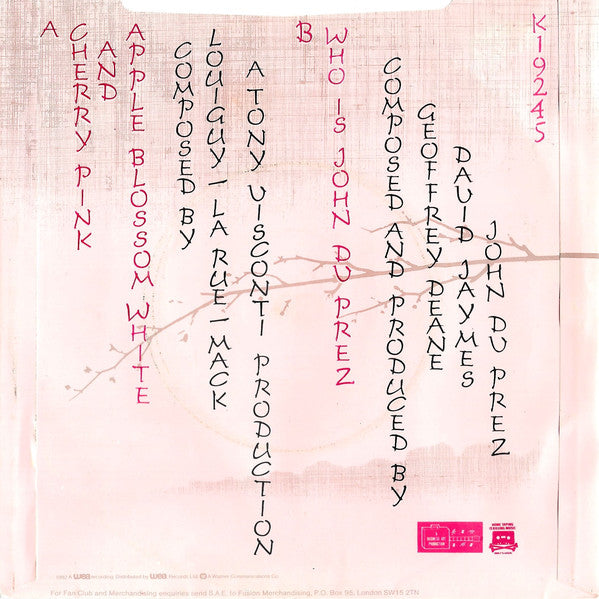 A
CHERRY PINK
AND
APPLE BLOSSOM WHITE
COMPOSED BY
LOUIGUY – LA RUE – MACK
A TONY VISCONTI PRODUCTION
B
WHO IS JOHN DU PREZ
COMPOSED AND PRODUCED BY
GEOFFREY DEANE
DAVID JAYMES
JOHN DU PREZ
K19245
HOME TAPING
IS KILLING MUSIC
PRODUCTION
1982 A wea recording. Distributed by wea Records Ltd. A Warner Communications Co.
For Fan Club and Merchandising enquiries send S.A.E. to Fusion Merchandising, P.O. Box 95, London SW15 2TN